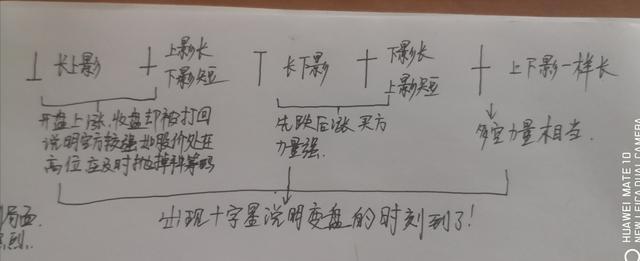 长上影
上影长
下影短
长下影
下影长
上影短
上下影一样长
开盘上涨,收盘却被打回
说明空方较强如股价处在
高位应及时抛掉筹码
先跌后涨买方
力量强.
多空力量相当.
出现十字星说明变盘的时刻到了!
局面
HUAWEI MATE 10
NEW LEICA DUAL CAMERA